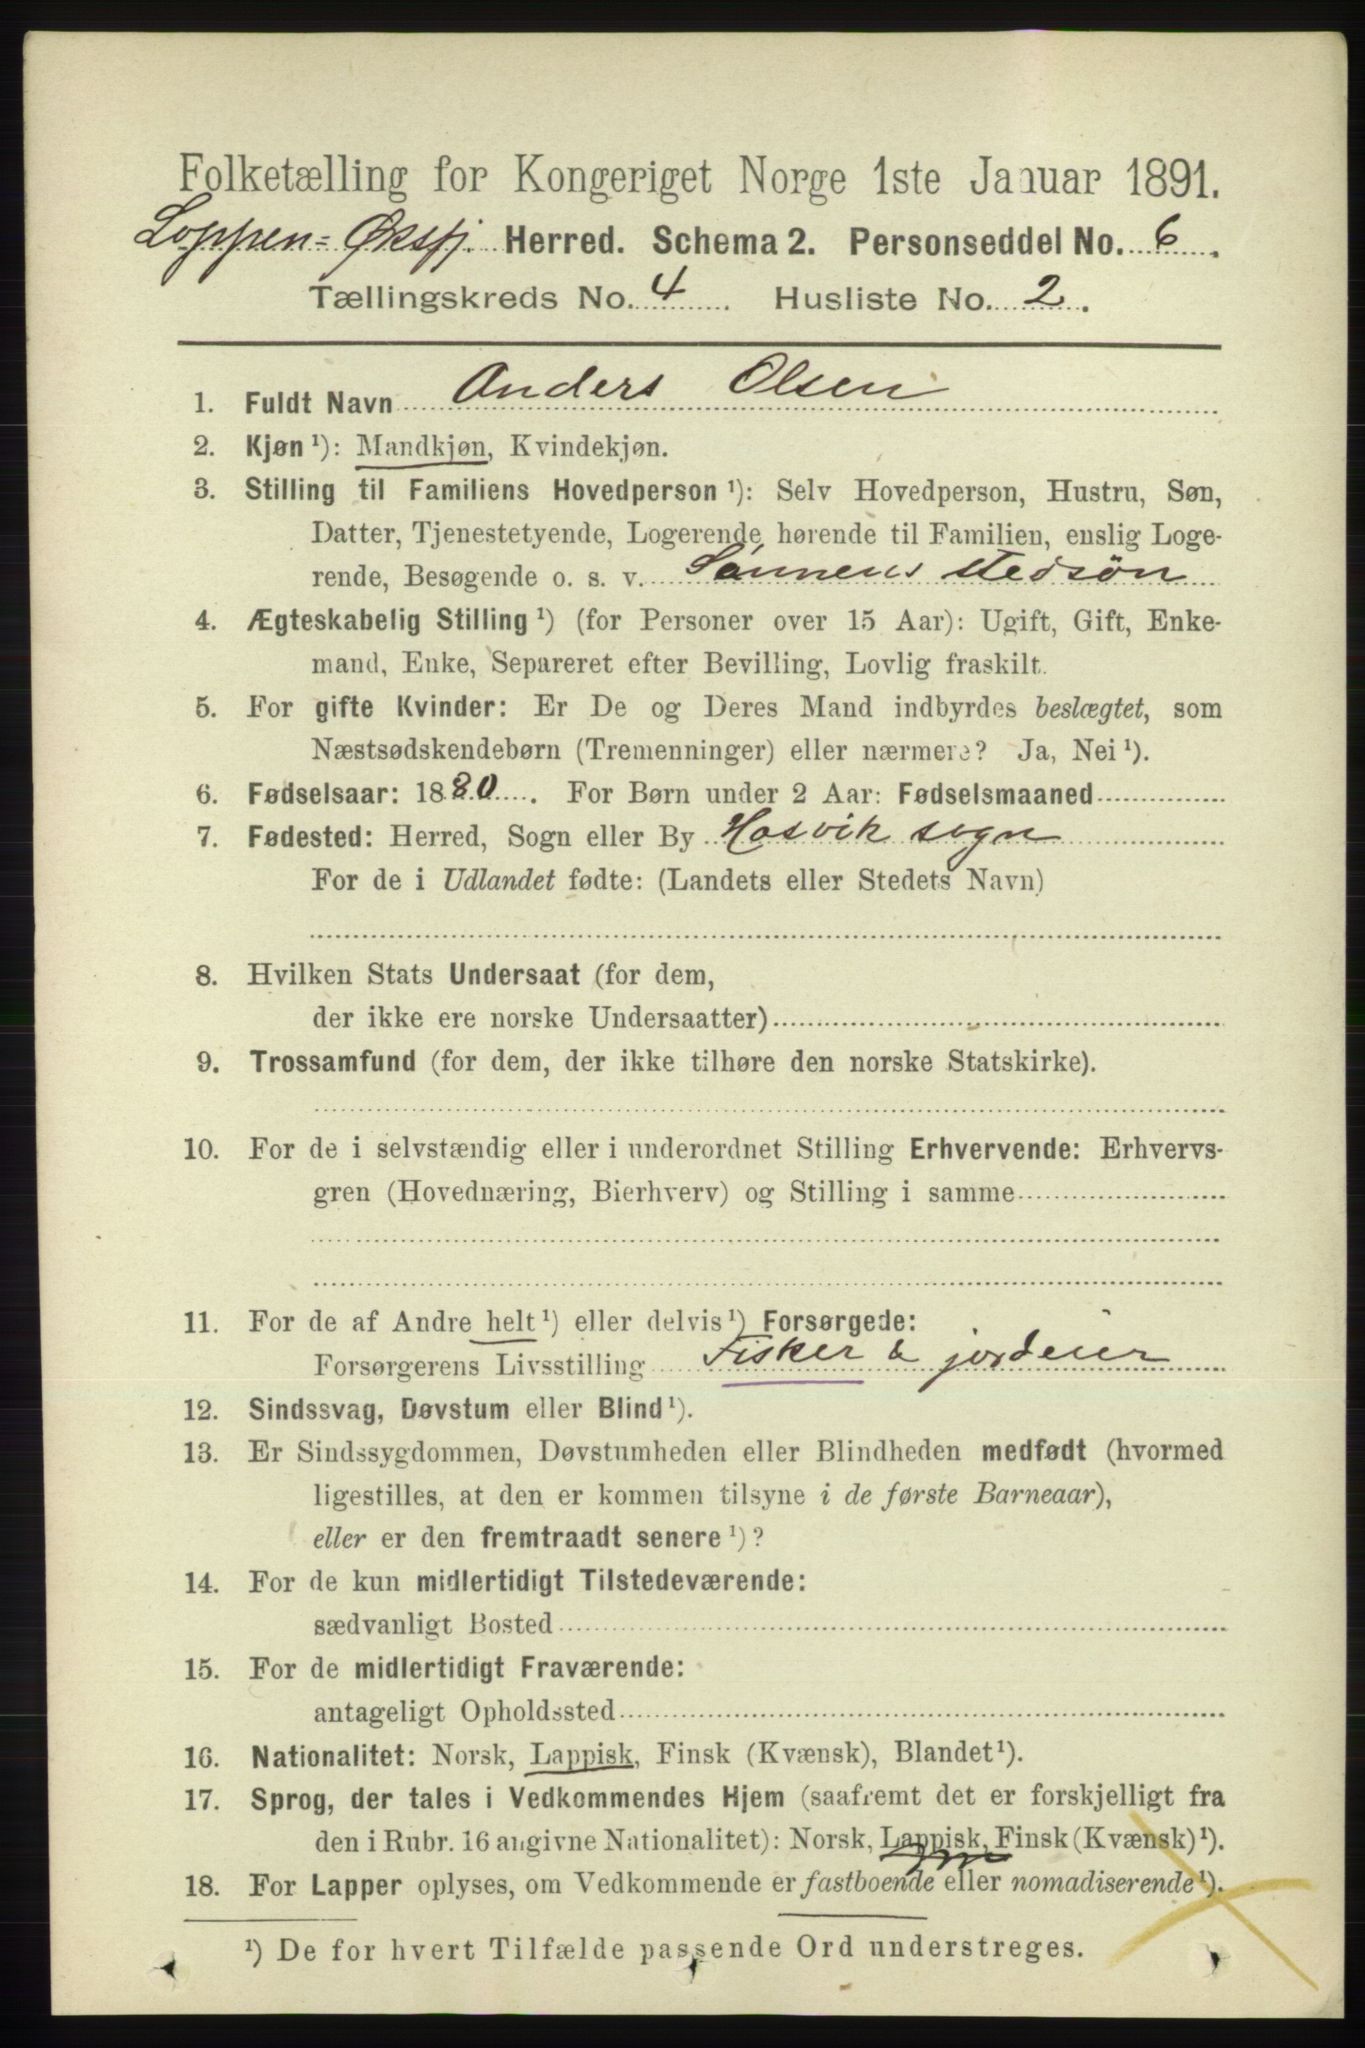 Folketælling for Kongeriget Norge 1ste Januar 1891.
Loppen=Øksfj. Herred. Schema 2. Personseddel No. 6.
Tællingskreds No. 4. Husliste No. 2.
1. Fuldt Navn Anders Olsen
2. Kjøn ¹): Mandkjøn, Kvindekjøn.
3. Stilling til Familiens Hovedperson ¹): Selv Hovedperson, Hustru, Søn,
Datter, Tjenestetyende, Logerende hørende til Familien, enslig Loge-
rende, Besøgende o. s. v. Sønnens stedsøn
4. Ægteskabelig Stilling ¹) (for Personer over 15 Aar): Ugift, Gift, Enke-
mand, Enke, Separeret efter Bevilling, Lovlig fraskilt.
5. For gifte Kvinder: Er De og Deres Mand indbyrdes beslægtet, som
Næstsødskendebørn (Tremenninger) eller nærmere? Ja, Nei ¹).
6. Fødselsaar: 1880. For Børn under 2 Aar: Fødselsmaaned
7. Fødested: Herred, Sogn eller By Hasvik sogn
For de i Udlandet fødte: (Landets eller Stedets Navn)
8. Hvilken Stats Undersaat (for dem,
der ikke ere norske Undersaatter)
9. Trossamfund (for dem, der ikke tilhøre den norske Statskirke).
10. For de i selvstændig eller i underordnet Stilling Erhvervende: Erhvervs-
gren (Hovednæring, Bierhverv) og Stilling i samme
11. For de af Andre helt ¹) eller delvis ¹) Forsørgede:
Forsørgerens Livsstilling Fisker & jordeier
12. Sindssvag, Døvstum eller Blind ¹).
13. Er Sindssygdommen, Døvstumheden eller Blindheden medfødt (hvormed
ligestilles, at den er kommen tilsyne i de første Barneaar),
eller er den fremtraadt senere ¹)?
14. For de kun midlertidigt Tilstedeværende:
sædvanligt Bosted
15. For de midlertidigt Fraværende:
antageligt Opholdssted
16. Nationalitet: Norsk, Lappisk, Finsk (Kvænsk), Blandet ¹).
17. Sprog, der tales i Vedkommendes Hjem (saafremt det er forskjelligt fra
den i Rubr. 16 angivne Nationalitet): Norsk, Lappisk, Finsk (Kvænsk) ¹).
18. For Lapper oplyses, om Vedkommende er fastboende eller nomadiserende ¹).
¹) De for hvert Tilfælde passende Ord understreges.